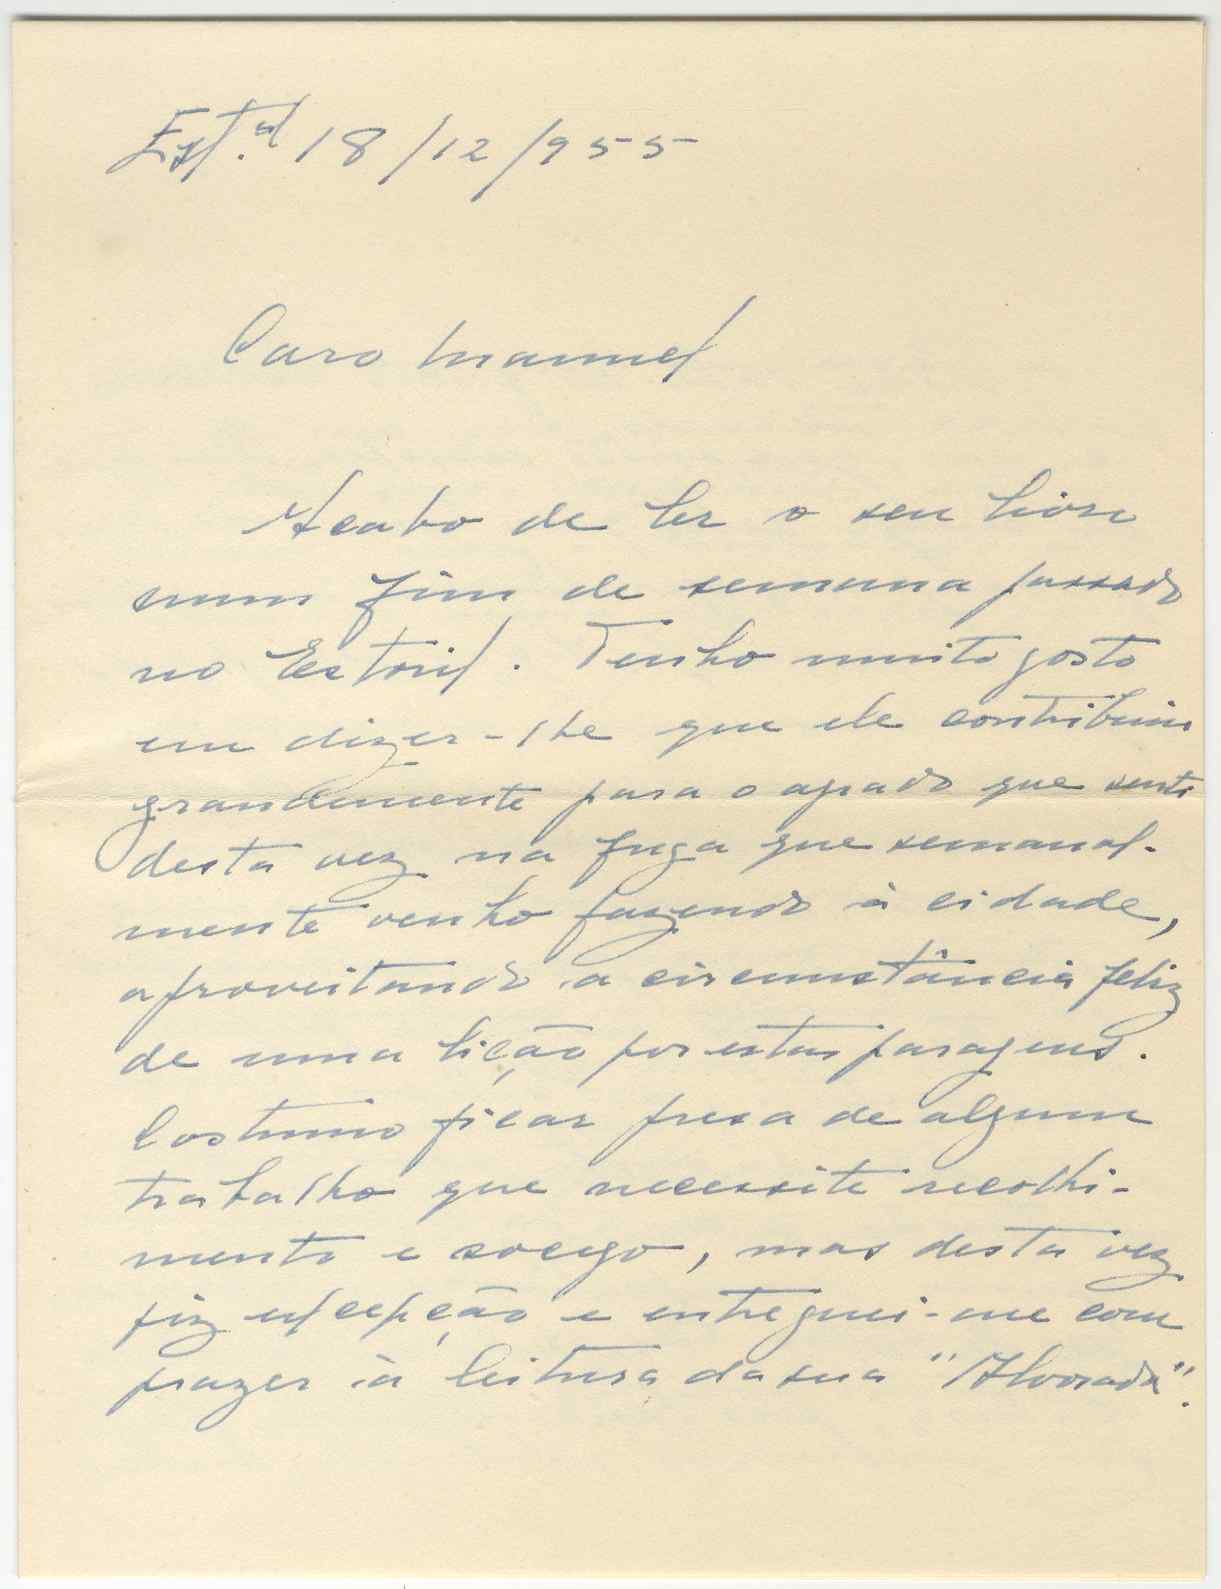 Est.al 18/12/955
Caro Manuel
Acabo de ler o seu livro
num fim de semana passado
no Estoril. Tenho muito gosto
em dizer-lhe que ele contribuiu
grandemente para o agrado que senti
desta vez na fuga que semanal-
mente venho fazendo à cidade,
aproveitando a circunstância feliz
de uma lição por estas paragens.
Costumo ficar presa de algum
trabalho que necessite recolhi-
mento e socego, mas desta vez
fiz excepção e entreguei-me com
prazer à leitura da sua "Alvorada".